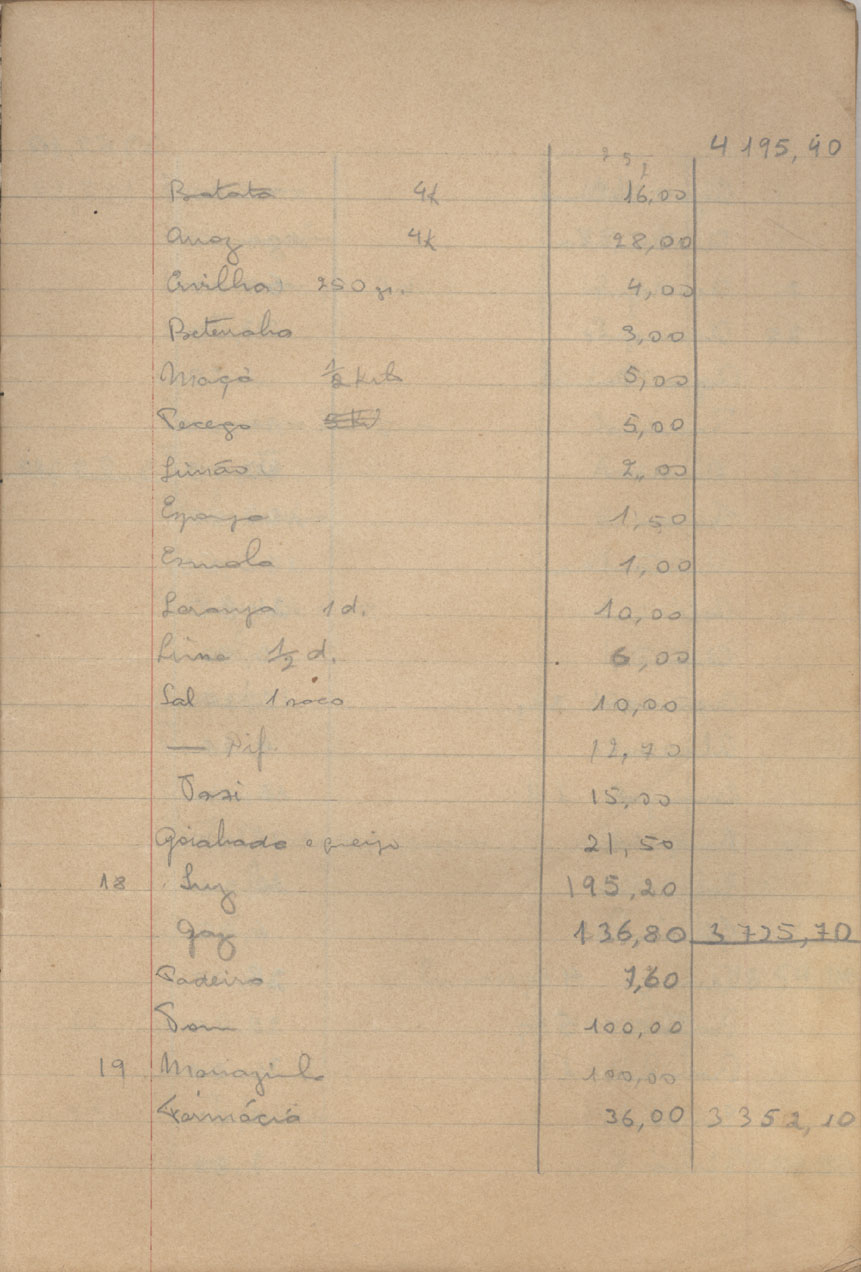 4 195,40
Batata 4k 16,00
Arroz 4k 28,00
Ervilha 250 gr. 4,00
Beterraba 3,00
Maçã 1/2 kilo 5,00
Pecego 5,00
Limão 2,00
Esponja 1,50
Esmola 1,00
Laranja 1 d. 10,00
Lima 1/2 d. 6,00
Sal 1 saco 10,00
— Dif. 12,70
Taxi 15,00
Goiabada e queijo 21,50
18 Luz 195,20
Gaz 136,80 3 725,70
Padeiro 7,60
100,00
19 100,00
Farmácia 36,00 3 352,10